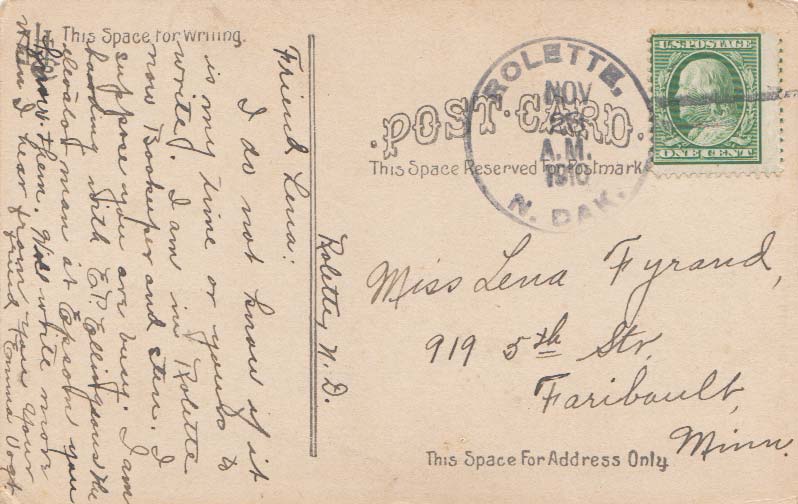 This Space for Writing.
Rolette, N. D.
Friend Lena:
I do not know if it
is my time or yours to
write. I am in Rolette
now Bookeeper and Sten. I
suppose you are busy. I am
boarding with E.P. Ellingsons the
elevator man at Epsom you
know them. Will write more
when I hear from you. Your
friend Emma Vogt.
POST CARD.
This Space Reserved for Postmark
ROLETTE,
NOV
A.M.
1910
N. DAK.
U.S. POSTAGE
ONE CENT
Miss Lena Fyrand,
919 5th Str.
Faribault,
Minn.
This Space For Address Only